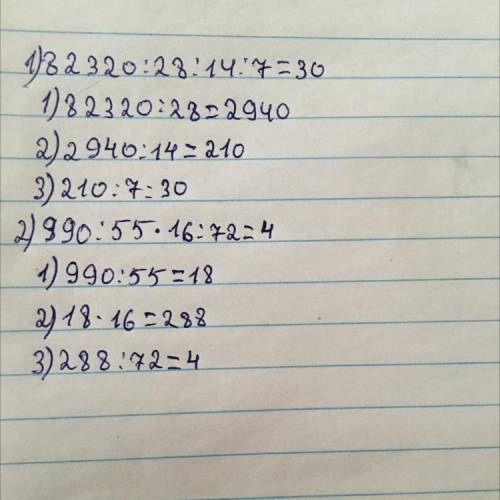 1) 82320:28:14:7=30
1) 82320:28=2940
2) 2940:14=210
3) 210:7=30
2) 990:55·16:72=4
1) 990:55=18
2) 18·16=288
3) 288:72=4